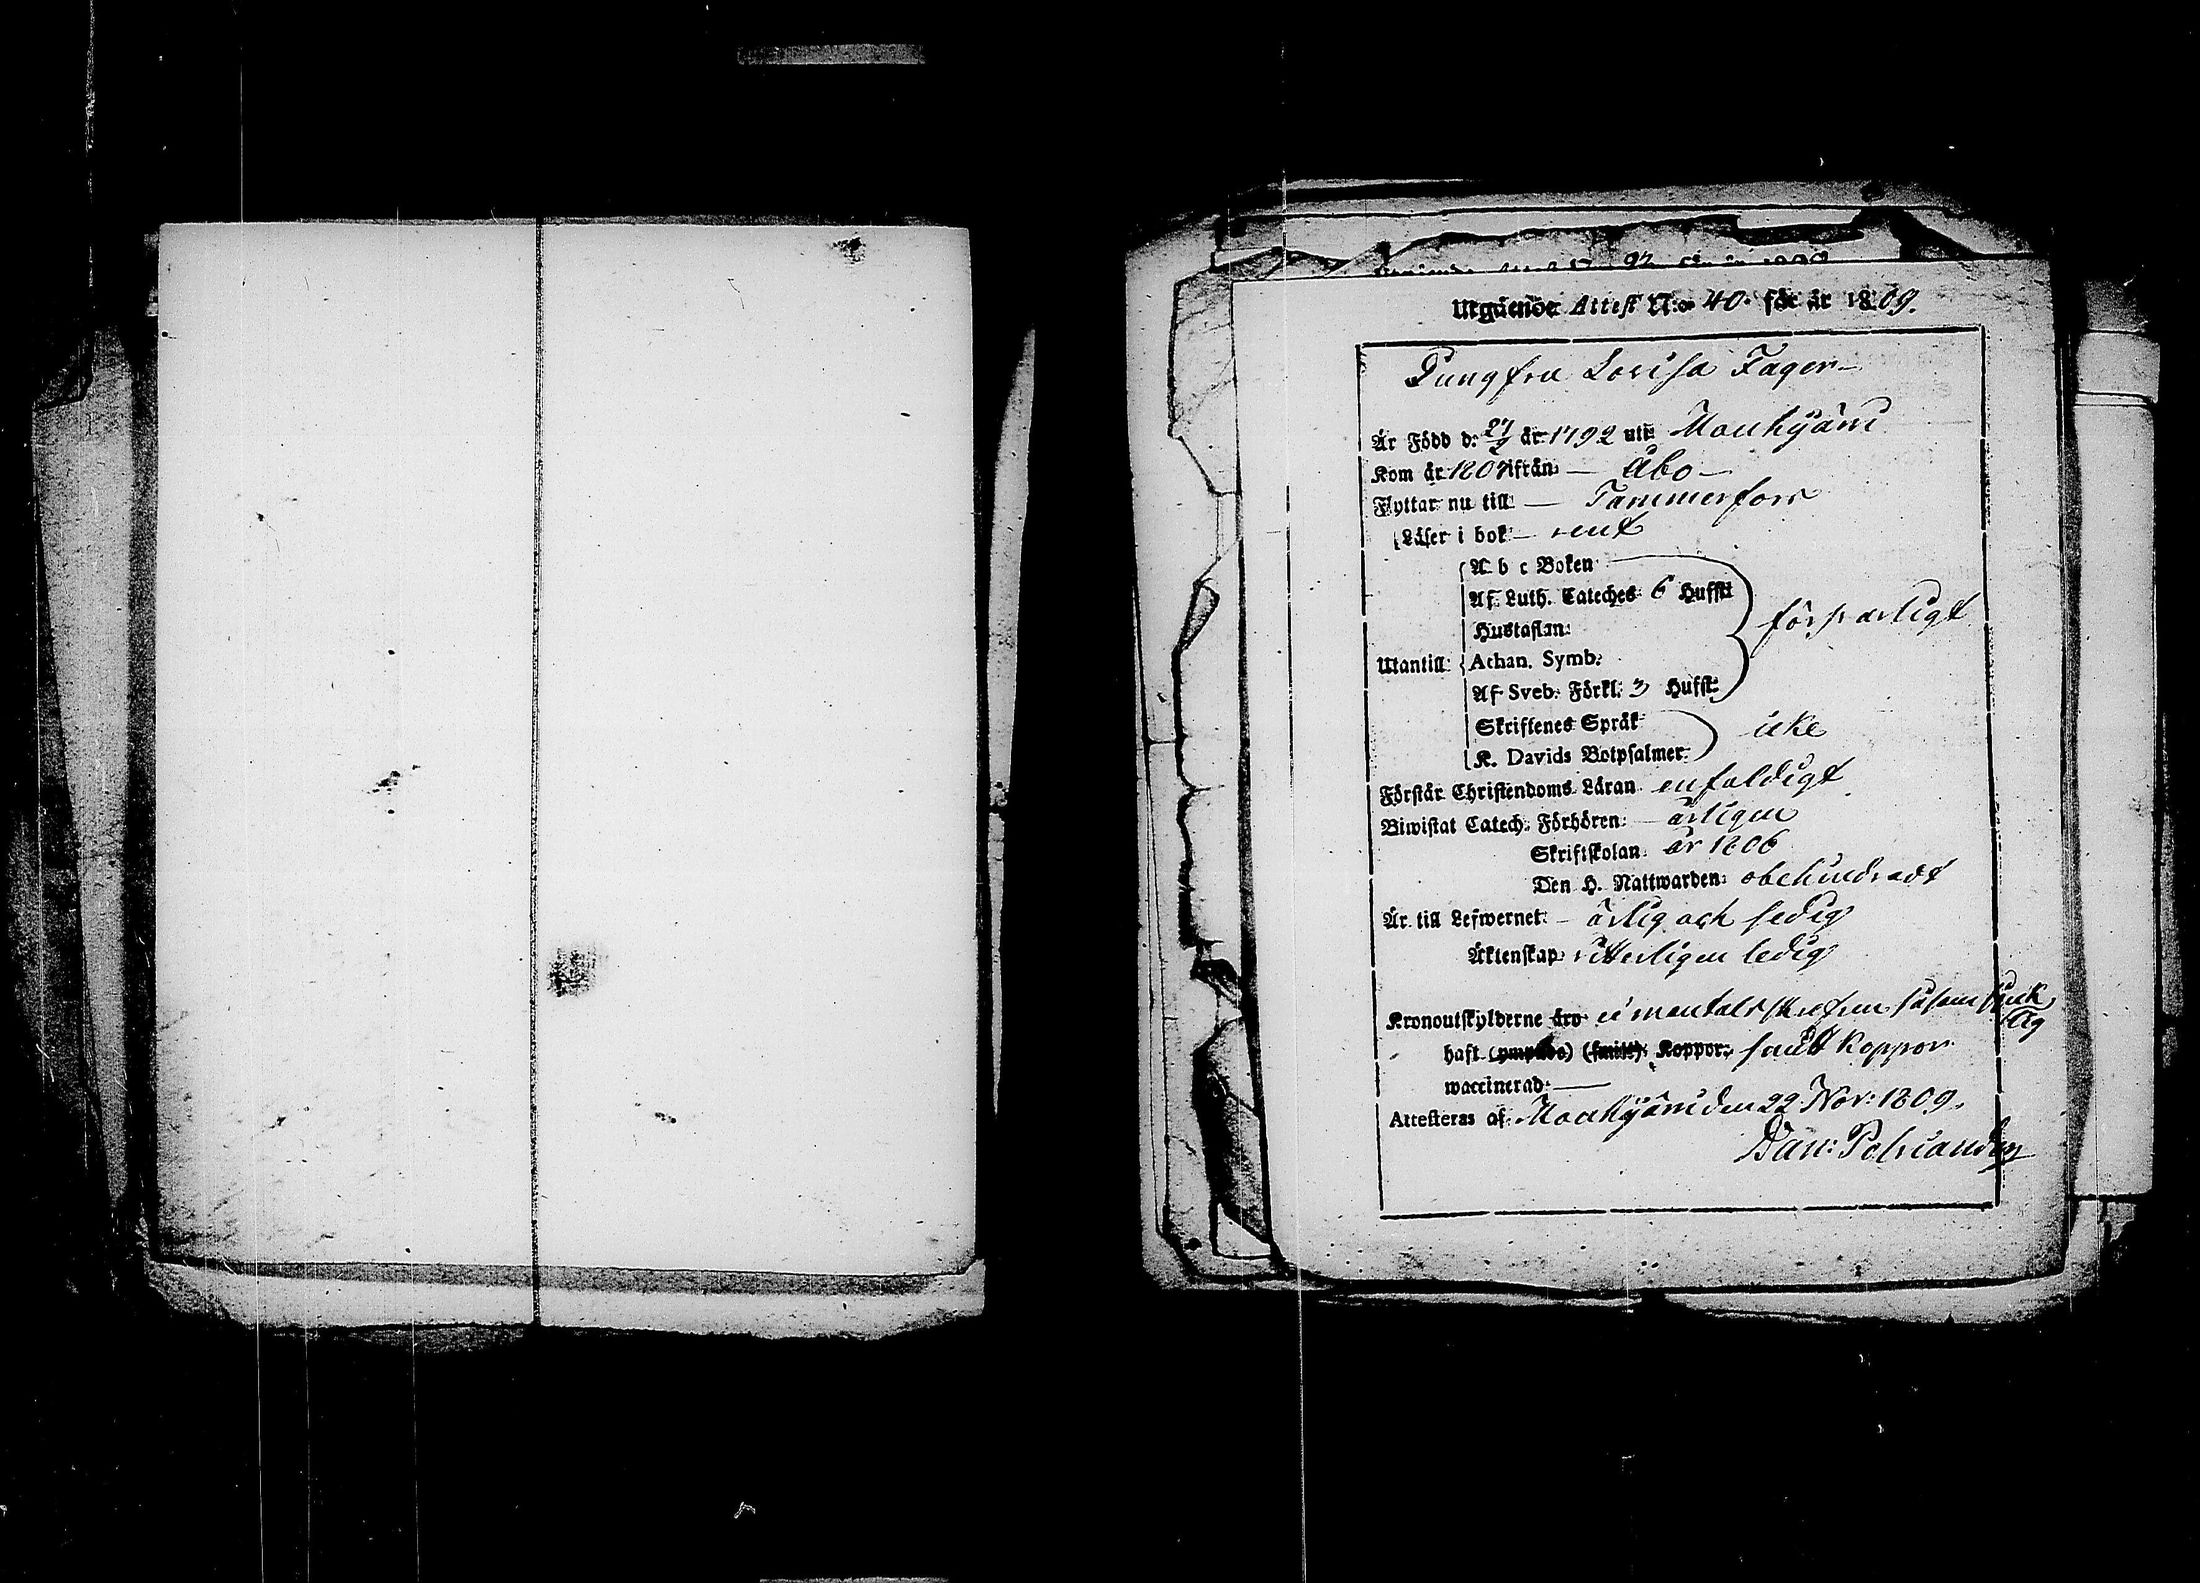 Utgående Attest N:o 40. för år 1809.
Jungfru Lovisa Fager
Är Född d: 27/2 år 1792 uti Mouhijärvi
Kom år 1807 ifrån: — Åbo —
Flyttar nu till — Tammerfors
Läser i bok — rent
A b c Boken
Af Luth. Cateches 6 Hufst:
Hustaflan:
försvarligt
Utantill: Athan. Symb:
Af Sveb. Förkl. 3 Hufst:
Skriftenes Språk
icke
K. Davids Botpsalmer:
Förstår Christendoms Läran enfaldigt
Biwistat Catech: Förhören: — årligen
Skriftskolan: år 1806
Den H. Nattwarden: obehindradt
Är till Lefwernet: — ärlig och sedig
Äktenskap: witterligen ledig
Kronoutskylderne äro ei mantals skrefven såsom sjuk
lig
haft (ympade) (smitt) Koppor: smitt Koppor
waccinerad: —
Attesteras af: Mouhijärvi den 22 Nov: 1809.
Dan: Polviander